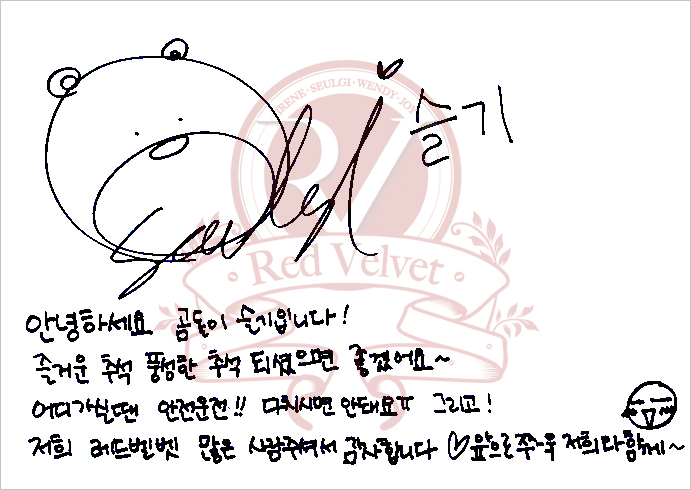 IRENE · SEULGI · WENDY · JOY
Seulgi
슬기
RV
Red Velvet
안녕하세요 곰돌이 슬기입니다!
즐거운 추석 풍성한 추석 되셨으면 좋겠어요~
어디가실땐 안전운전!! 다치시면 안돼요ㅠ 그리고!
저희 레드벨벳 많은 사랑주셔서 감사합니다 ♡ 앞으로 쭈-욱 저희와 함께~